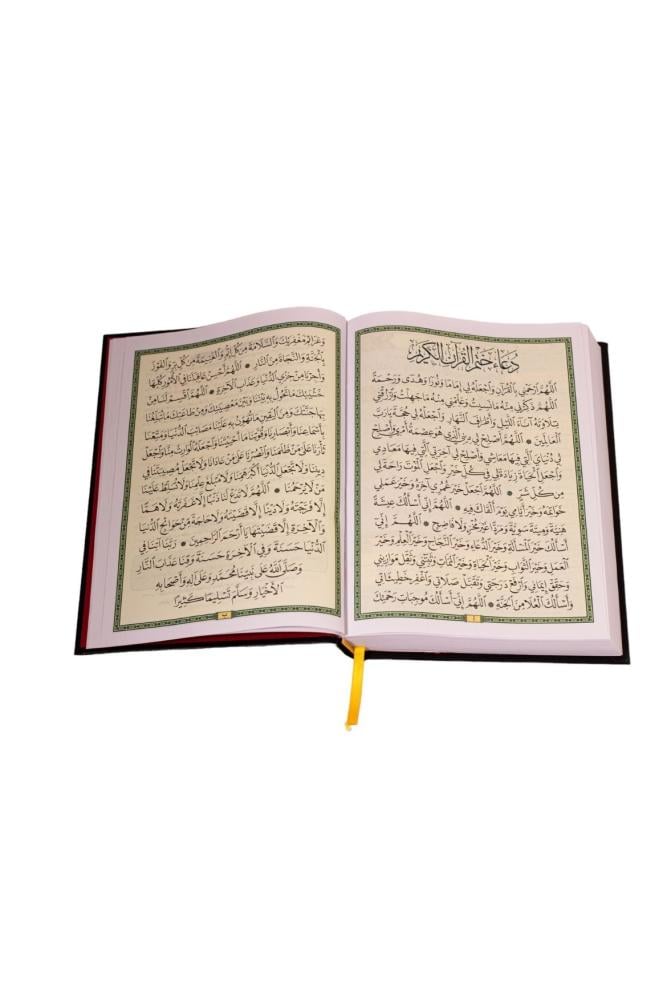 دُعَاءُ خَتْمِ الْقُرْآنِ الْكَرِيمِ
اَللّٰهُمَّ ارْحَمْنِي بِالْقُرْآنِ وَاجْعَلْهُ لِي إِمَامًا وَنُورًا وَهُدًى وَرَحْمَةً
اَللّٰهُمَّ ذَكِّرْنِي مِنْهُ مَا نَسِيتُ وَعَلِّمْنِي مِنْهُ مَا جَهِلْتُ وَارْزُقْنِي
تِلَاوَتَهُ آنَاءَ اللَّيْلِ وَأَطْرَافَ النَّهَارِ وَاجْعَلْهُ لِي حُجَّةً يَارَبَّ
الْعَالَمِينَ * اَللّٰهُمَّ أَصْلِحْ لِي دِينِيَ الَّذِي هُوَ عِصْمَةُ أَمْرِي وَأَصْلِحْ
لِي دُنْيَايَ الَّتِي فِيهَا مَعَاشِي وَأَصْلِحْ لِي آخِرَتِيَ الَّتِي فِيهَا مَعَادِي
وَاجْعَلِ الْحَيَاةَ زِيَادَةً لِي فِي كُلِّ خَيْرٍ وَاجْعَلِ الْمَوْتَ رَاحَةً لِي
مِنْ كُلِّ شَرٍّ * اَللّٰهُمَّ اجْعَلْ خَيْرَ عُمُرِي آخِرَهُ وَخَيْرَ عَمَلِي
خَوَاتِمَهُ وَخَيْرَ أَيَّامِي يَوْمَ أَلْقَاكَ فِيهِ * اَللّٰهُمَّ إِنِّي أَسْأَلُكَ عِيشَةً
هَنِيَّةً وَمِيتَةً سَوِيَّةً وَمَرَدًّا غَيْرَ مُخْزٍ وَلَا فَاضِحٍ * اَللّٰهُمَّ إِنِّي
أَسْأَلُكَ خَيْرَ الْمَسْأَلَةِ وَخَيْرَ الدُّعَاءِ وَخَيْرَ النَّجَاحِ وَخَيْرَ الْعِلْمِ وَخَيْرَ
الْعَمَلِ وَخَيْرَ الثَّوَابِ وَخَيْرَ الْحَيَاةِ وَخَيْرَ الْمَمَاتِ وَثَبِّتْنِي وَثَقِّلْ مَوَازِينِي
وَحَقِّقْ إِيمَانِي وَارْفَعْ دَرَجَتِي وَتَقَبَّلْ صَلَاتِي وَاغْفِرْ خَطِيئَاتِي
وَأَسْأَلُكَ الْعُلَا مِنَ الْجَنَّةِ * اَللّٰهُمَّ إِنِّي أَسْأَلُكَ مُوجِبَاتِ رَحْمَتِكَ
وَعَزَائِمَ مَغْفِرَتِكَ وَالسَّلَامَةَ مِنْ كُلِّ إِثْمٍ وَالْغَنِيمَةَ مِنْ كُلِّ بِرٍّ وَالْفَوْزَ
بِالْجَنَّةِ وَالنَّجَاةَ مِنَ النَّارِ * اَللّٰهُمَّ أَحْسِنْ عَاقِبَتَنَا فِي الْأُمُورِ كُلِّهَا
وَأَجِرْنَا مِنْ خِزْيِ الدُّنْيَا وَعَذَابِ الْآخِرَةِ * اَللّٰهُمَّ اقْسِمْ لَنَا مِنْ
خَشْيَتِكَ مَا تَحُولُ بِهِ بَيْنَنَا وَبَيْنَ مَعْصِيَتِكَ وَمِنْ طَاعَتِكَ مَا تُبَلِّغُنَا
بِهَا جَنَّتَكَ وَمِنَ الْيَقِينِ مَا تُهَوِّنُ بِهِ عَلَيْنَا مَصَائِبَ الدُّنْيَا وَمَتِّعْنَا
بِأَسْمَاعِنَا وَأَبْصَارِنَا وَقُوَّتِنَا مَا أَحْيَيْتَنَا وَاجْعَلْهُ الْوَارِثَ مِنَّا وَاجْعَلْ
ثَأْرَنَا عَلَى مَنْ ظَلَمَنَا وَانْصُرْنَا عَلَى مَنْ عَادَانَا وَلَا تَجْعَلْ مُصِيبَتَنَا فِي
دِينِنَا وَلَا تَجْعَلِ الدُّنْيَا أَكْبَرَ هَمِّنَا وَلَا مَبْلَغَ عِلْمِنَا وَلَا تُسَلِّطْ عَلَيْنَا
مَنْ لَا يَرْحَمُنَا * اَللّٰهُمَّ لَا تَدَعْ لَنَا ذَنْبًا إِلَّا غَفَرْتَهُ وَلَا هَمًّا
إِلَّا فَرَّجْتَهُ وَلَا دَيْنًا إِلَّا قَضَيْتَهُ وَلَا حَاجَةً مِنْ حَوَائِجِ الدُّنْيَا
وَالْآخِرَةِ إِلَّا قَضَيْتَهَا يَا أَرْحَمَ الرَّاحِمِينَ * رَبَّنَا آتِنَا فِي
الدُّنْيَا حَسَنَةً وَفِي الْآخِرَةِ حَسَنَةً وَقِنَا عَذَابَ النَّارِ
وَصَلَّى اللهُ عَلَى نَبِيِّنَا مُحَمَّدٍ وَعَلَى آلِهِ وَأَصْحَابِهِ
الْأَخْيَارِ وَسَلَّمَ تَسْلِيمًا كَثِيرًا